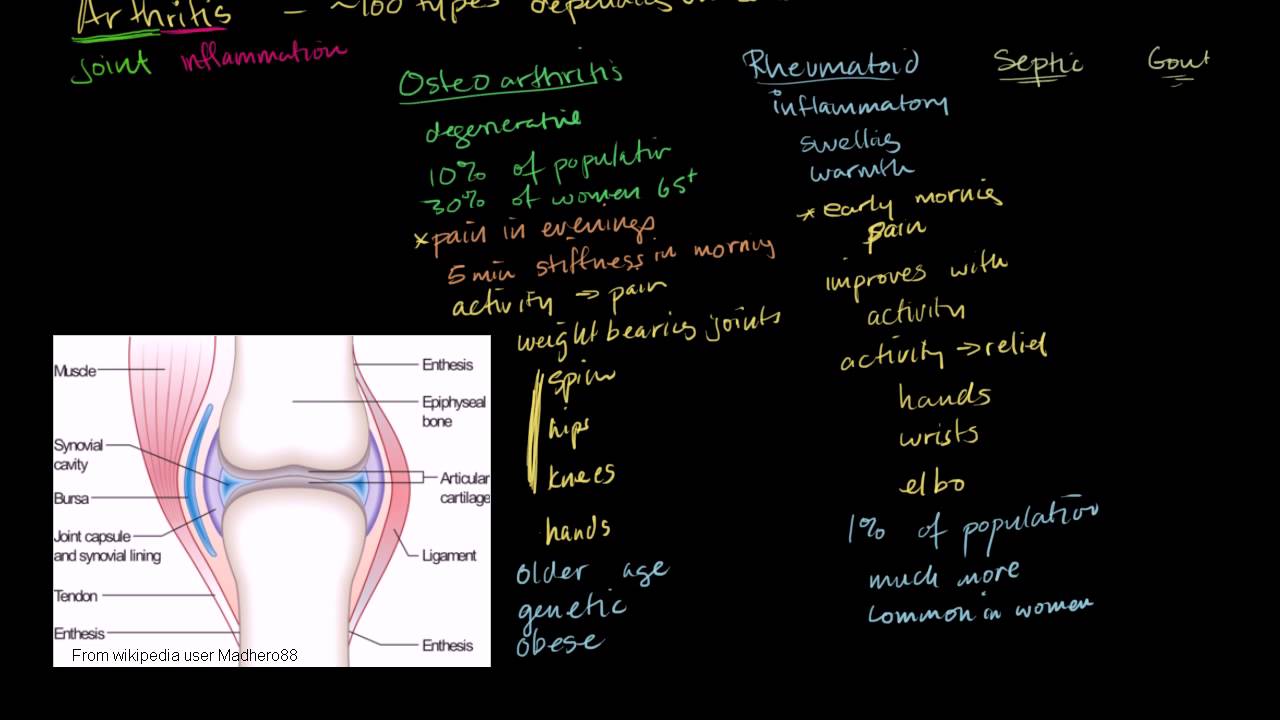 Arthritis - ~100 types depending on
joint inflammation
Osteoarthritis
degenerative
10% of population
30% of women 65+
* pain in evenings
5 min stiffness in morning
activity → pain
weight bearing joints
spine
hips
knees
hands
older age
genetic
obese
Rheumatoid
inflammatory
swelling
warmth
* early morning
pain
improves with
activity
activity → relief
hands
wrists
elbo
1% of population
much more
common in women
Septic
Gout
Muscle
Synovial
cavity
Bursa
Joint capsule
and synovial lining
Tendon
Enthesis
Enthesis
Epiphyseal
bone
Articular
cartilage
Ligament
Enthesis
From wikipedia user Madhero88